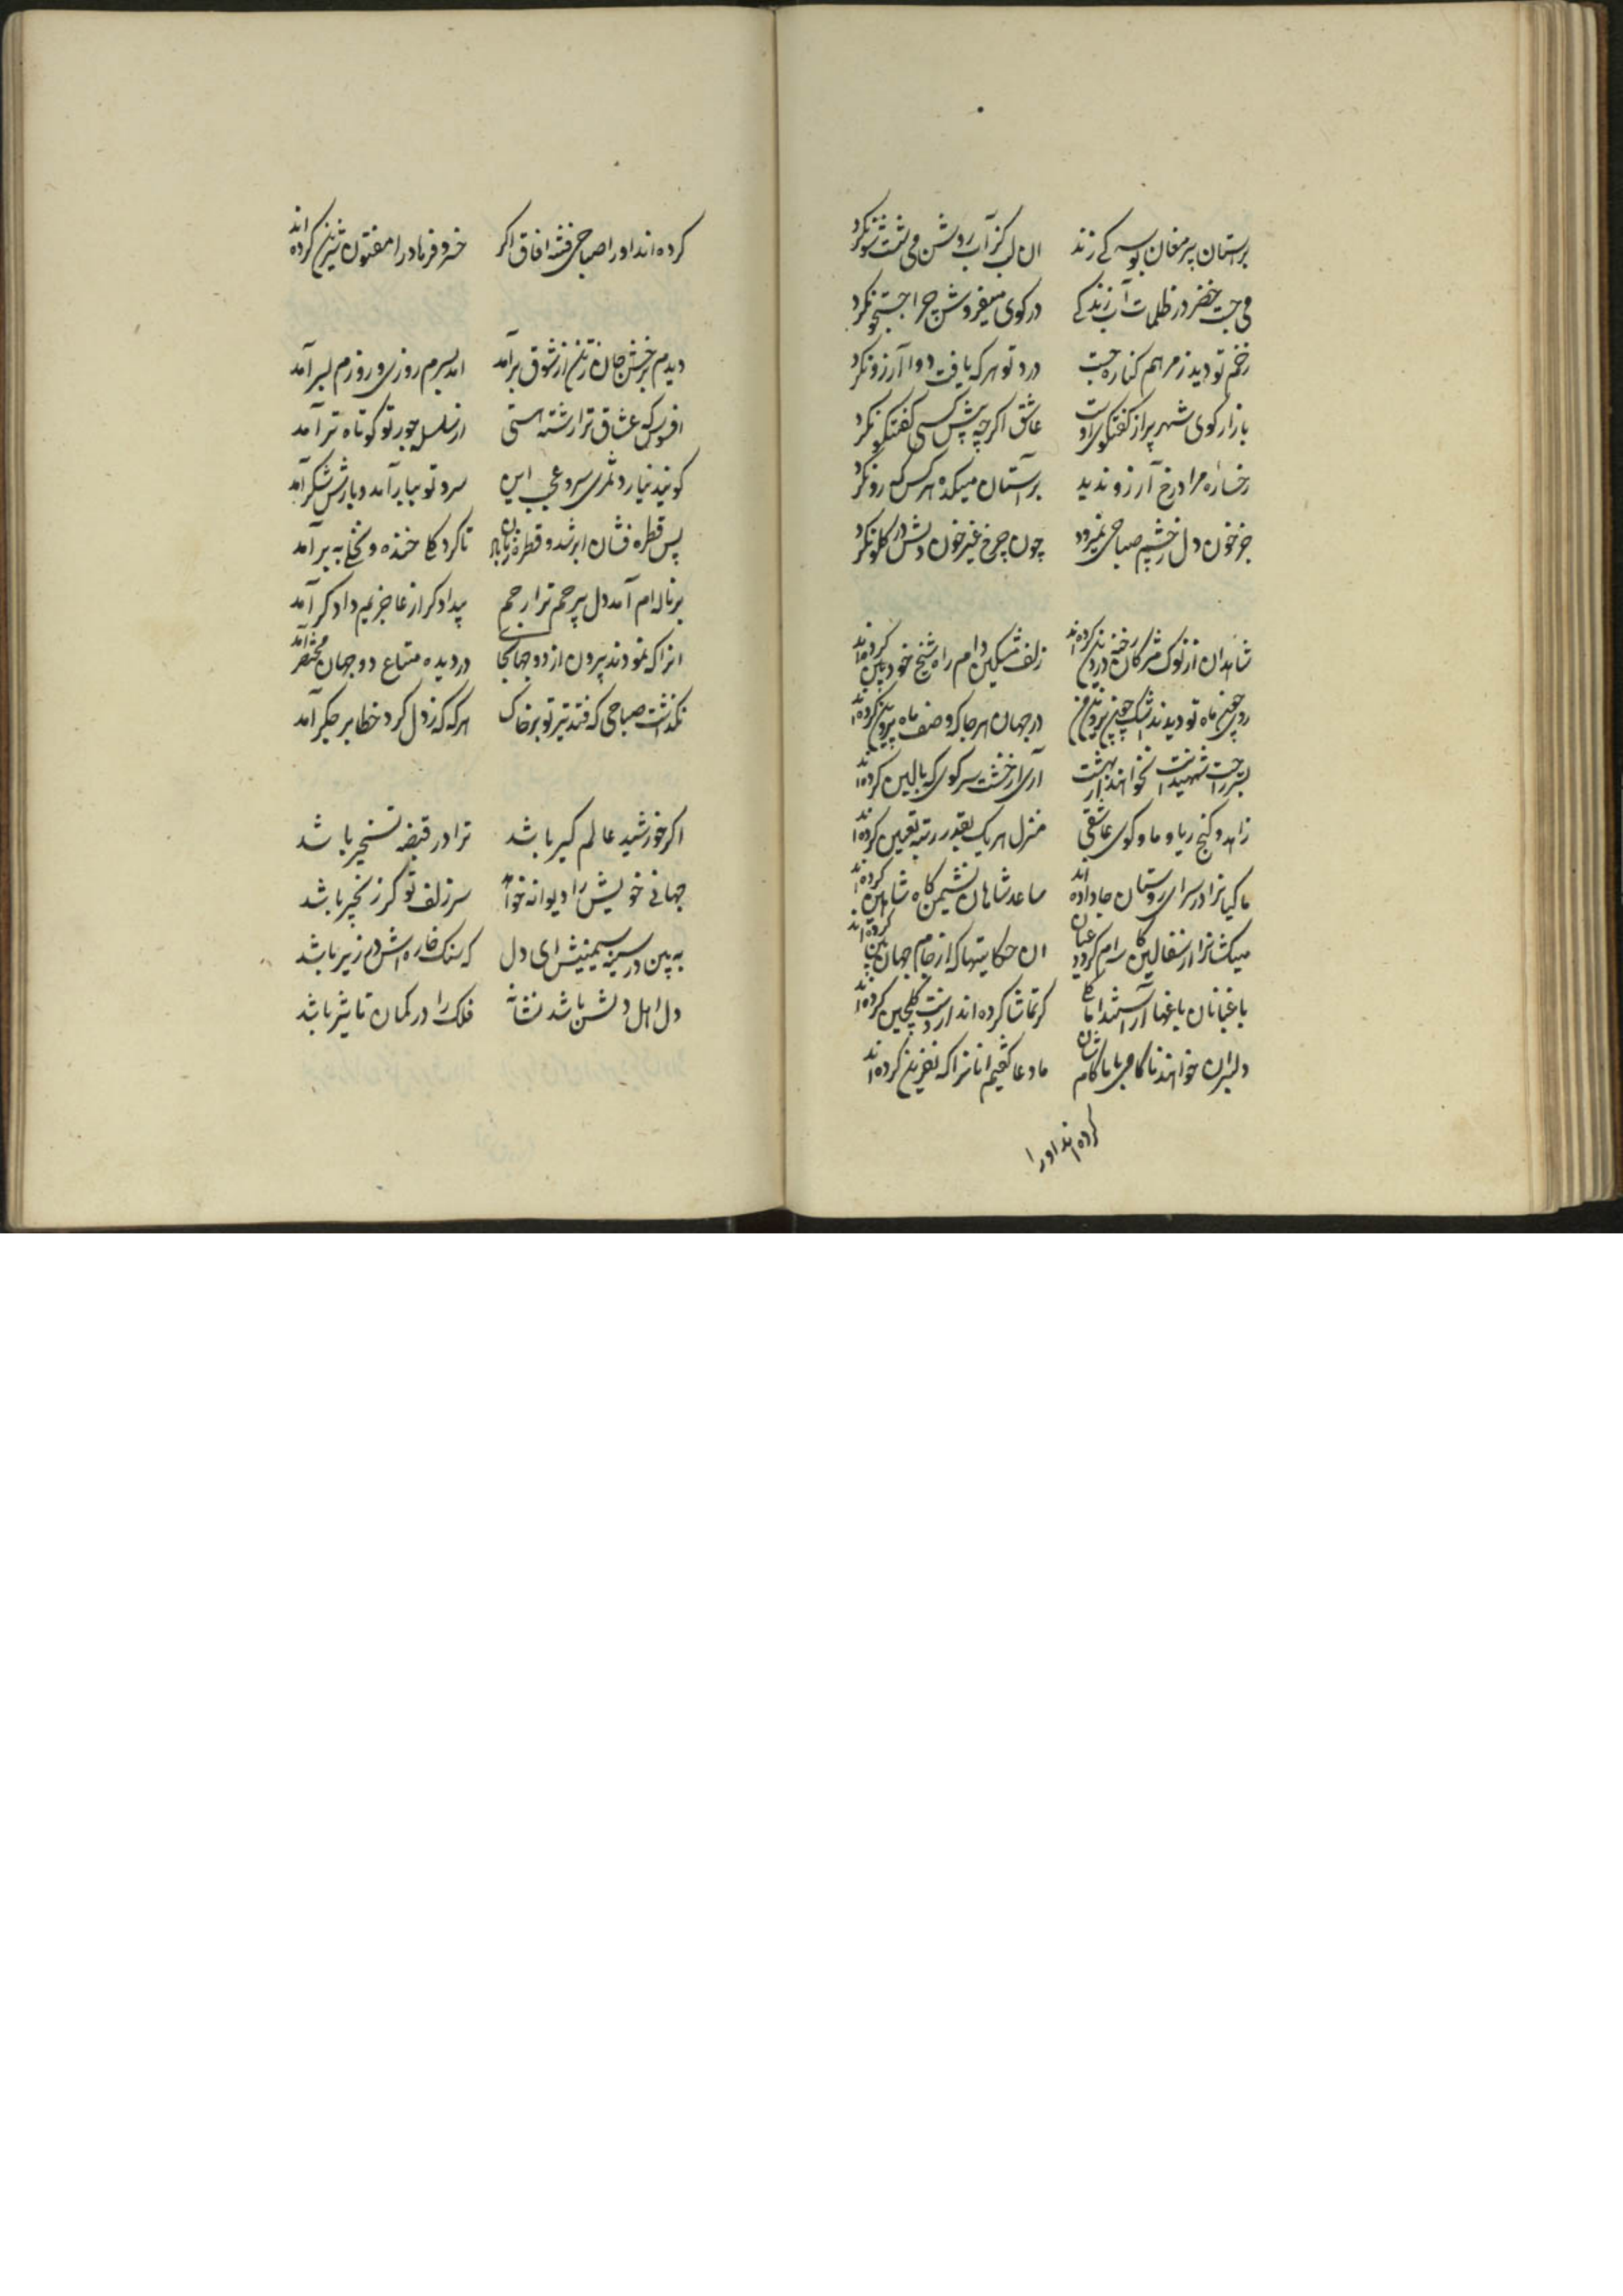 بر آستان پیر مغان بوسه کے زند ان لب کز آب روشن می شست شو نکرد
می جست خضر در ظلمات آب زندگے در کوی میفروش چرا جستجو نکرد
زخم تو دید ز مرهم کناره جست درد تو هر که یافت دوا آرزو نکرد
بازار کوی شهر پر از گفتگوی اوست عاشق اگر چه پیش کسی گفتگو نکرد
رخساره مراد رخ آرزو ندید بر آستان میکده هر کس که رو نکرد
جز خون دل ز چشم صباحی نمیرود چون چرخ غیر خون دلش در گلو نکرد
شاهدان از نوک مژگان رخنه در دین کرده اند زلف مشکین دام راه شیخ خود بین کرده اند
در جهان هر جا که وصف ماه پروین کرده اند
بستر راحت شهیدانت نخواهند از بهشت آری از خشت سر کوی که بالین کرده اند
زاهد و کنج ریا و ما و کوی عاشقی منزل هر یک بقدر رتبه تعیین کرده اند
ماکیانرا در سرای روستان جا داده اند ساعد شاهان نشیمن گاه شاهین کرده اند
میکشانرا از سفالین کاسه ام گردد عیان ان حکایتها که از جام جهان بین کرده اند
باغبانان باغها آراستند اما کے گر تماشا کرده اند از دست گلچین کرده اند
دلبران خواهند ناکامی ما ما کامشان ما دعا گفتیم انانرا که نفرین کرده اند
کرده اند او را
کرده اند او را صباحی فتنه افاق اگر خسرو فرهاد را مفتون شیرین کرده اند
دیدم برخش جان ز تن از شوق برآمد امد بسرم روزی و روزم بسر آمد
افسوس که عشاق ترا رشته هستی از سلسله جور تو کوتاه تر آمد
گویند نیارد ثمری سرو عجب این سرو تو ببار آمد و بارش شکر آمد
پس قطره فشان ابر شد و قطره زنان باد تا کرد گلے خنده و نخلے به بر آمد
بر ناله ام آمد دل بیرحم ترا رحم بیدادگر از عاجزیم دادگر آمد
انرا که نمودند بیرون از دو جهان جا در دیده متاع دو جهان مختصر آمد
نگذشت صباحی که فتد تیر تو بر خاک هر که که ز دل کرد خطا بر جگر آمد
اگر خورشید عالم گیر باشد ترا در قبضه تسخیر باشد
جهانے خویش را دیوانه خواهد سر زلف تو گر زنجیر باشد
به بین در سینه سیمینش ای دل که سنگ خاره اش در زیر باشد
دل اهل دلش باشد نشانه فلک را در کمان تا تیر باشد